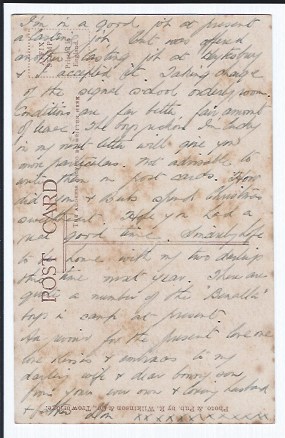 I'm in a good job at present
a lasting job but was offered
another lasting job at Heytesbury
& I accepted it. Taking charge
of the signal school orderly room.
Conditions are far better, fair amount
of leave. The boys reckon I'm lucky
in my next letter will give you
more particulars. Not advisable to
write them on post cards. How
did you & bub spend Christmas
sweetheart. Hope you had a
real good time. Sincerely hope
to be home with my two darlings
this time next year. There are
quite a number of the "Benalla"
boys in camp at present.
Au revoir for the present love one
love kisses & embraces to my
darling wife & dear bonny son
from your own & loving husband
& father
xxxxxxxxxxxx
POST CARD
Photo & Pub. by R. Wilkinson & Co., Trowbridge.